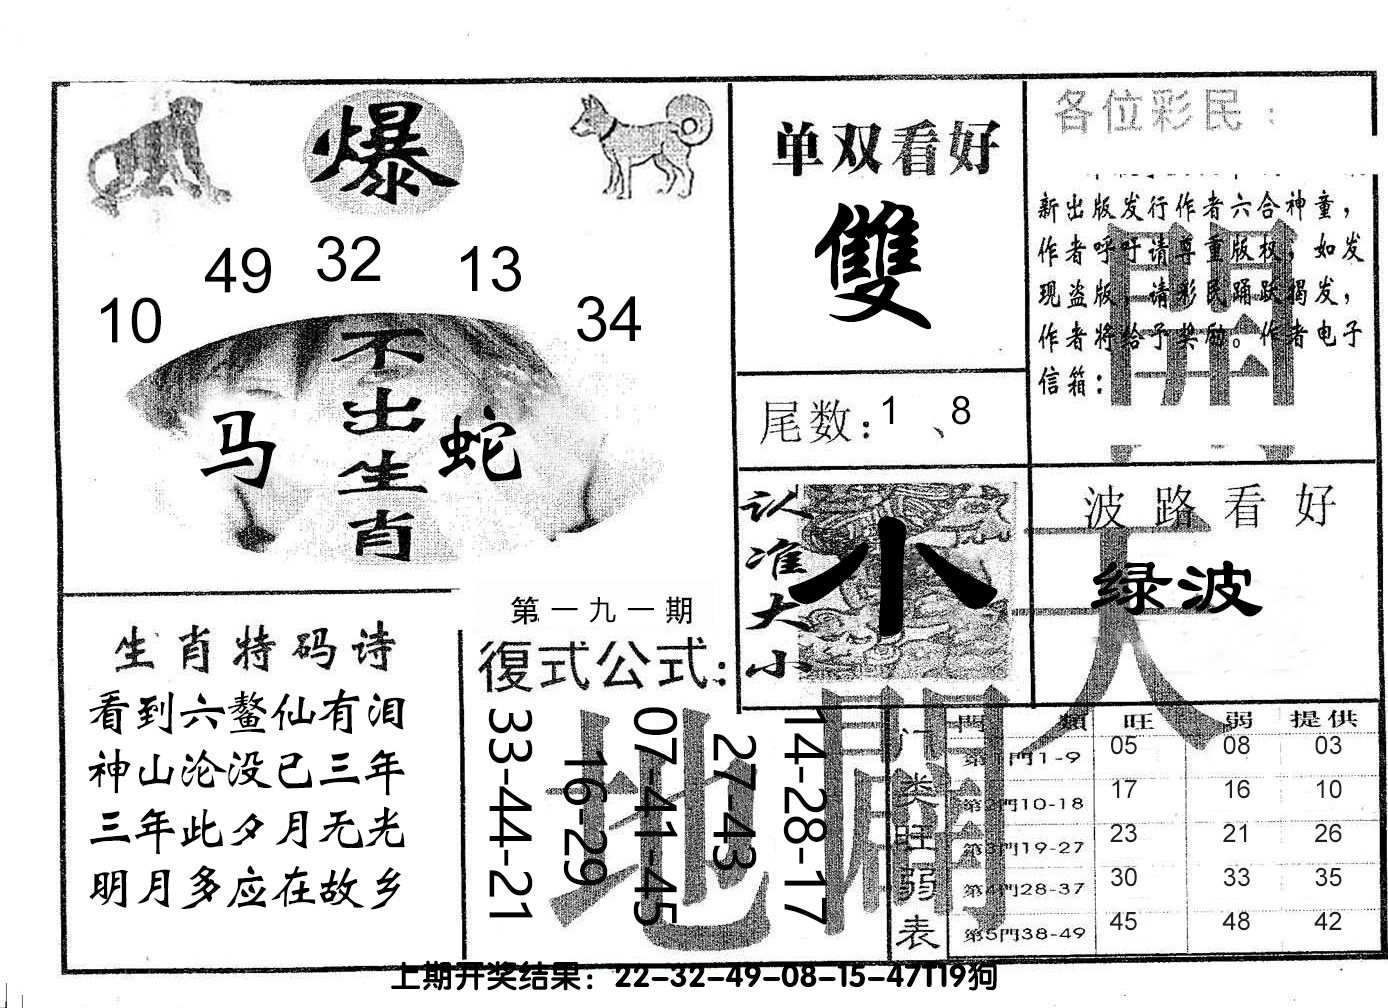 爆
49 32 13
10 34
不出生肖
马 蛇
单双看好
雙
尾数：1、8
各位彩民：
新出版发行作者六合神童，
作者呼吁请尊重版权，如发
现盗版，请彩民踊跃揭发，
作者将给予奖励。作者电子
信箱：
開
认准大小
小
波路看好
绿波
天
生肖特码诗
看到六鳌仙有泪
神山沦没已三年
三年此夕月无光
明月多应在故乡
第一九一期
復式公式：
33-44-21
16-29
07-41-45
27-43
14-28-17
地
門类旺弱表
門類 旺 弱 提供
第1門1-9 05 08 03
第2門10-18 17 16 10
第3門19-27 23 21 26
第4門28-37 30 33 35
第5門38-49 45 48 42
上期开奖结果：22-32-49-08-15-47T19狗